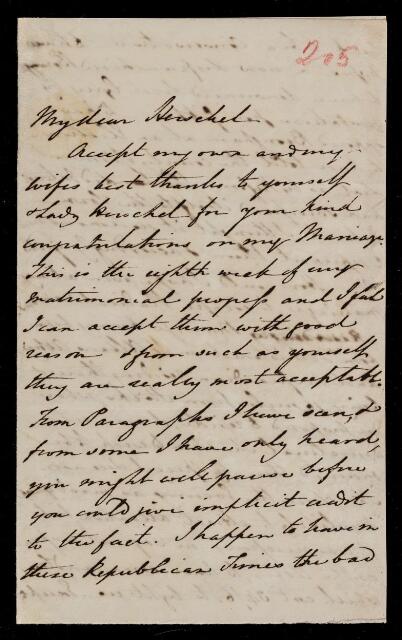 205
My dear Herschel
Accept my own and my
wifes best thanks to yourself
& Lady Herschel for your kind
congratulations on my Marriage.
This is the eighth week of my
matrimonial progress and I feel
I can accept them with good
reason & from such as yourself
they are really most acceptable.
From Paragraphs I have seen, &
from some I have only heard,
you might well pause before
you could give implicit credit
to the fact. I happen to have in
these Republican Times the bad